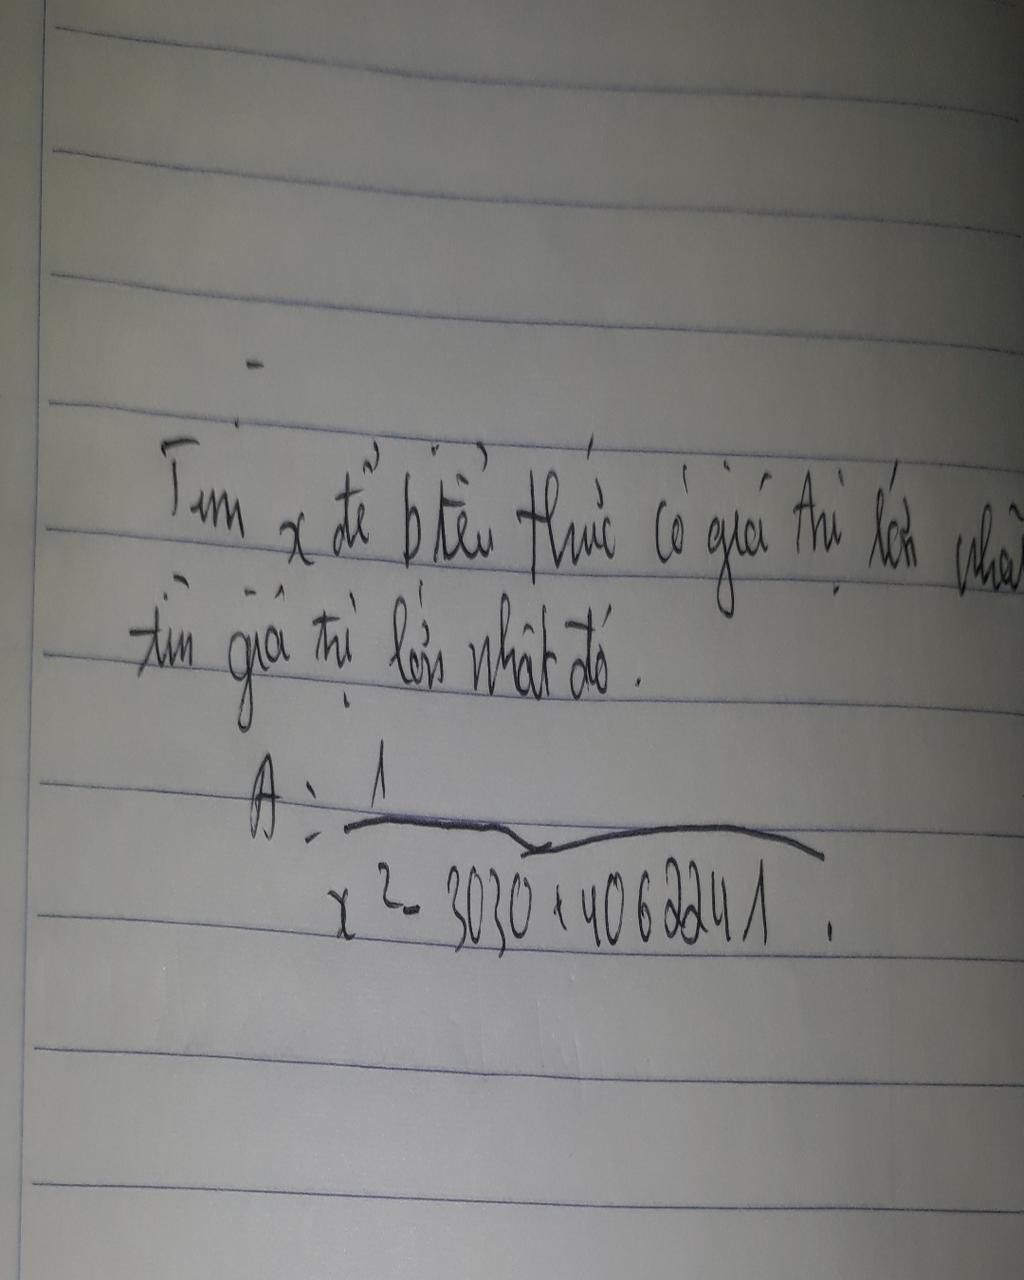 Tìm x để biểu thức có giá trị lớn nhất
tìm giá trị lớn nhất đó.
A = 1
x² - 3030 + 4062241 .